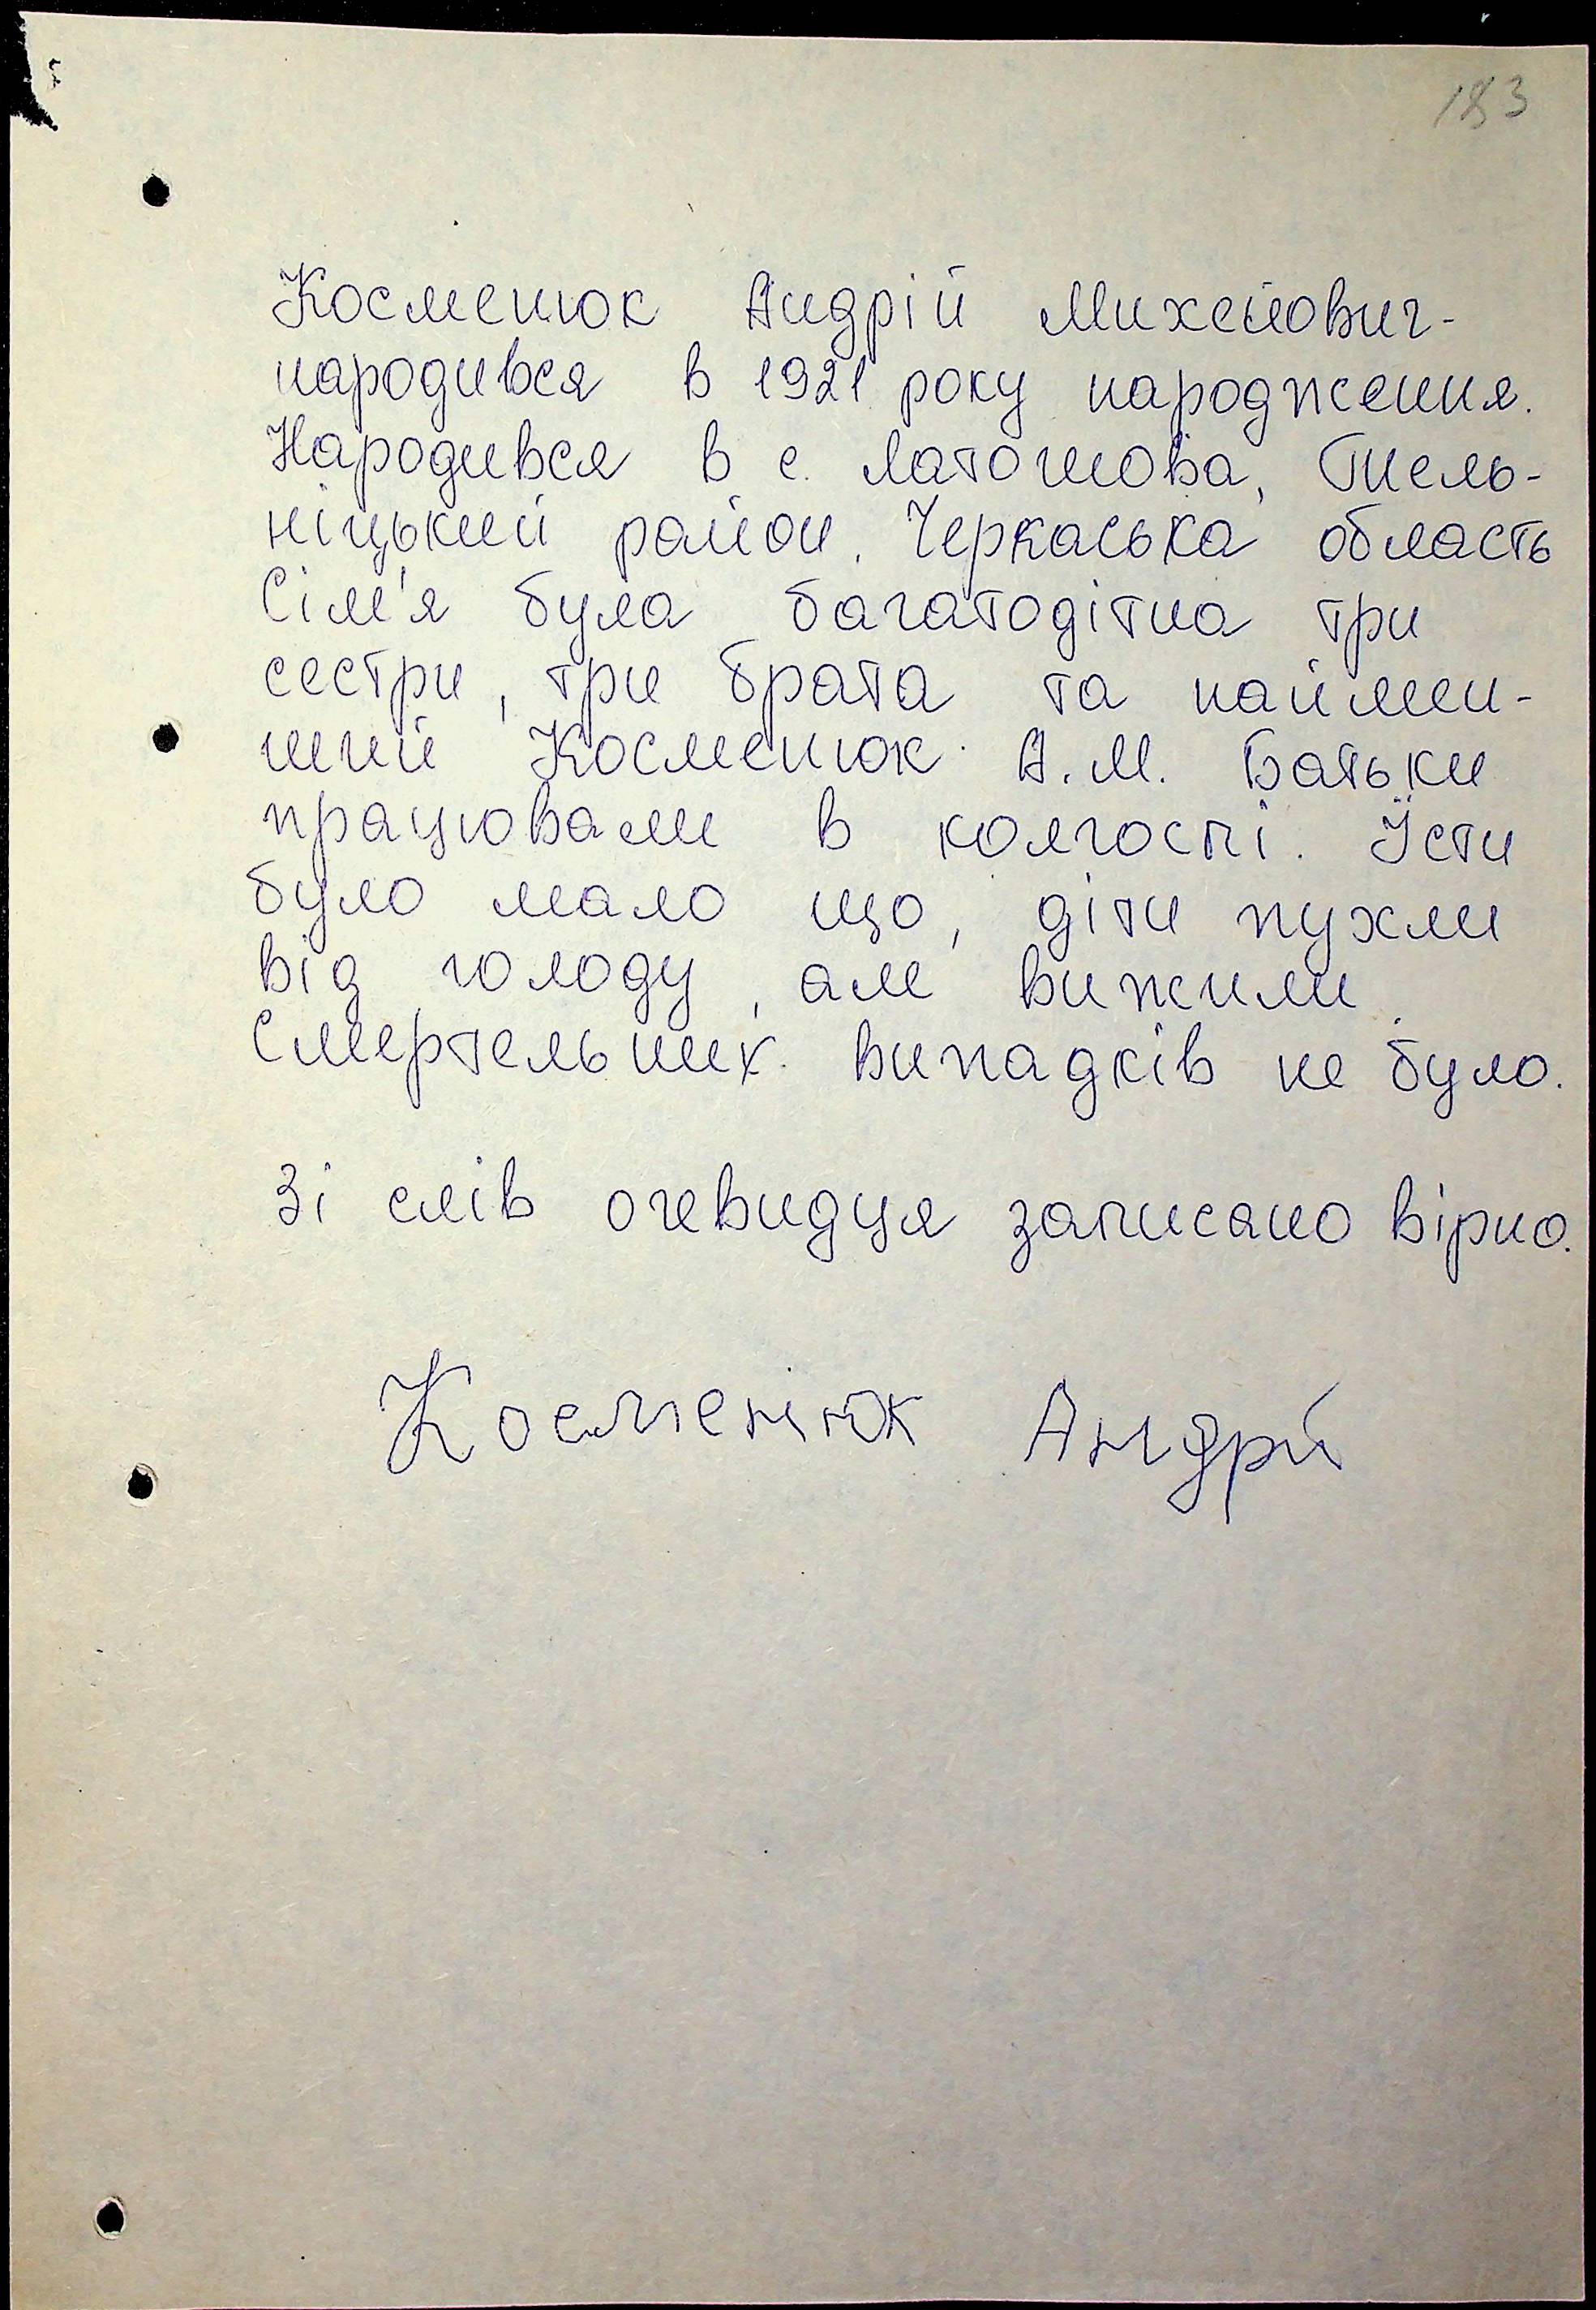 183
Косменюк Андрій Михейович-
народився в 1921 року народження.
Народився в с. Латошова, Тпель-
ніцький район. Черкаська область
Сім'я була багатодітна три
сестри, три брата та наймен-
ший Косменюк А.М. Батьки
працювали в колгоспі. Їсти
було мало що, діти пухли
від голоду, але вижили.
Смертельних випадків не було.
Зі слів очевидця записано вірно.
Косменюк Андрій